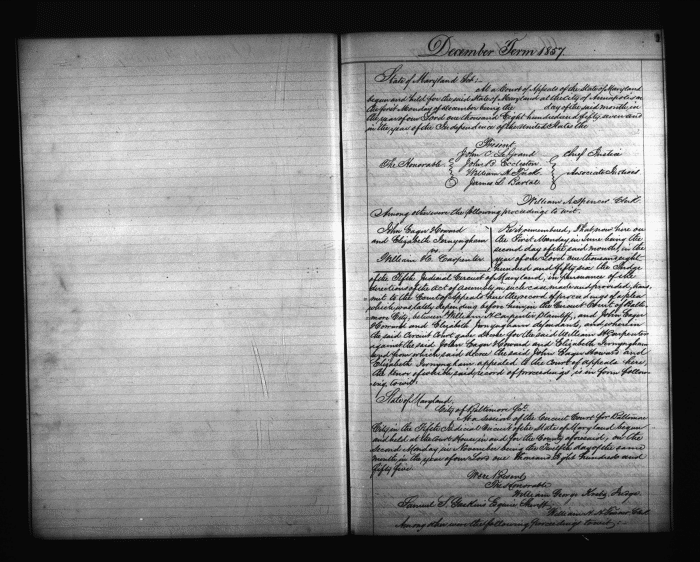 December Term 1857.
State of Maryland Sct:
At a Court of Appeals of the State of Maryland
begun and held for the said State of Maryland at the City of Annapolis on
the first Monday of December being the day of the said month, in
the year of our Lord one thousand Eight hundred fifty seven and
in the year of the Independence of the United States the
Present
The Honorable John C. LeGrand Chief Justice
John B. Eccleston
William H. Tuck Associate Justices
James L. Bartol
William A. Spencer Clerk
Among other were the following proceedings to wit.
John Eager Howard
and Elizabeth
vs
William H. Carpenter
Be it remembered, That now here on
the First Monday in June being the
second day of the said month, in the
year of our Lord one thousand eight
hundred and fifty six the Judge
of the Fifth Judicial Circuit of Maryland, in pursuance of the
directions of the Act of assembly in such case made and provided, trans,
mit to the Court of Appeals here the record of proceedings of a plea
which was lately depending before him, in the Circuit Court of Balti-
more City, between William H. Carpenter, Plaintiff, and John Eager
Howard and Elizabeth defendants, and wherein
the said Circuit Court gave for the said William H Carpenter
against the said John Eager Howard and Elizabeth
and from which said the said John Eager Howard and
Elizabeth appealed to the Court of Appeals here
the tenor of which said record of proceedings is in form follow-
ing, to wit:
State of Maryland,
City of Baltimore Sct.
At a session of the Circuit Court for Baltimore
City in the Fifth Judicial Circuit of the State of Maryland begun
and held at the Court House in and for the County aforesaid, on the
Second Monday in November being the Twelfth day of the same
month in the year of our Lord one thousand Eight hundred and
fifty five.
Were Present
The Honorable
William George Krebs, Judge.
Samuel S. Gaskins Esquire Sheriff
William H. H. Clk.
Among other were the following proceedings to wit;